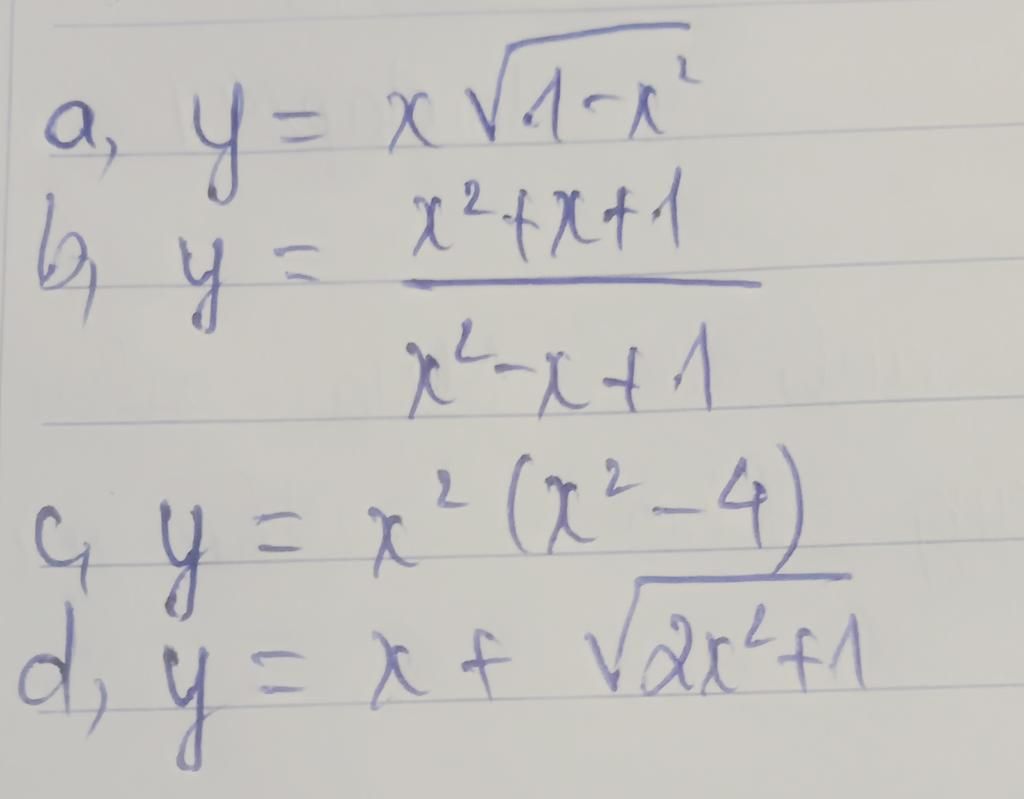 a, y = x √1-x²
b, y = x²+x+1 / x²-x+1
c, y = x² (x²-4)
d, y = x + √2x²+1